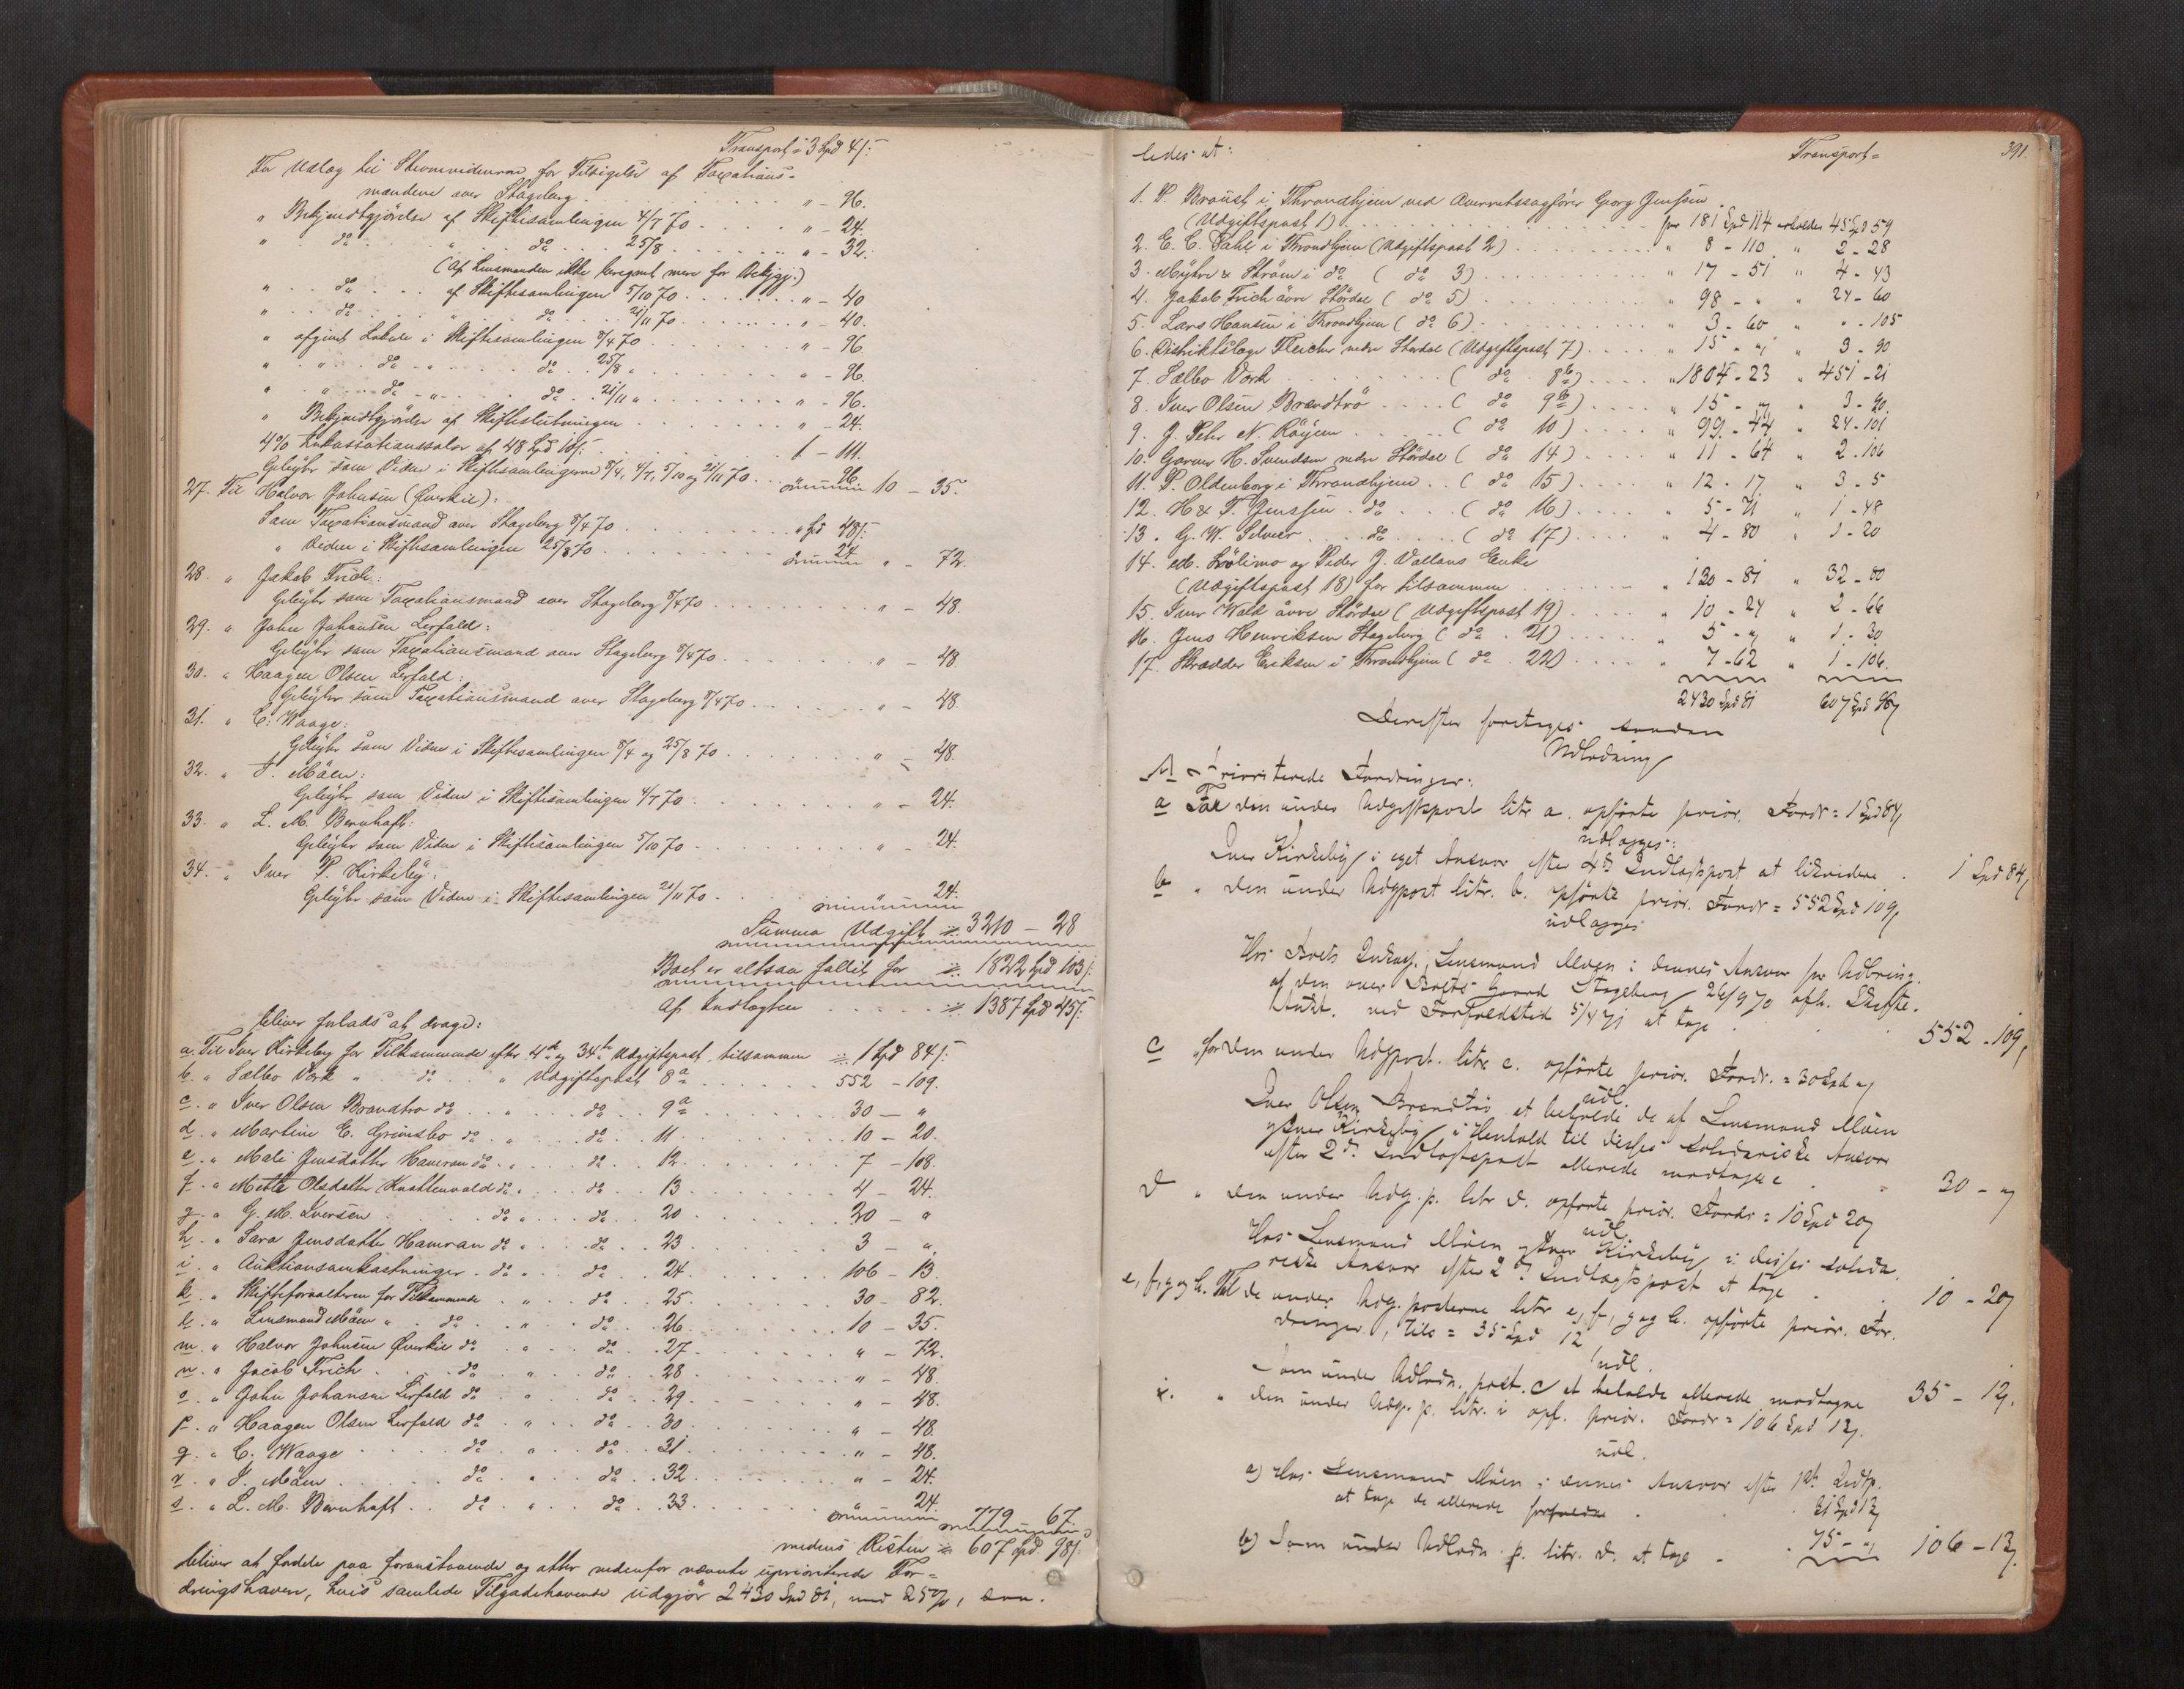 Transport = 3 Spd 4/:
For Udlæg til Stevnevidnerne for Tilsigelse af Taxations=
mændene over Stageberg . . . " - 96.
" Bekjendtgjørelse af Skiftesamlingen 4/7 70 . . . " - 24.
" do " do 25/8 . . . " - 32.
(Af Lensmanden ikke beregnet mere for Bekjgj.)
" do af Skiftesamlingen 5/10 70 . . . " - 40
" do " do 21/11 70 . . . " - 40.
" afgivet Lokale i Skiftesamlingen 8/4 70 . . . " - 96
" " do " do 25/8 " . . . " - 96.
" " do " do 21/11 " . . . " - 96.
" Bekjendtgjørelse af Skifteslutningen . . . " - 24.
4% Inkassationssalær af 48 Spd 10/: . . . 1 - 111.
Gebyhr som Vidne i Skiftesamlingerne 8/4, 4/7, 5/10 og 21/11 70 . . . 96. 10 - 35.
27. Til Halvor Johnsen (Øverkil):
Som Taxationsmand over Stageberg 8/4 70 . . . " Spd 48/:
" Vidne i Skiftesamlingen 25/8 70 . . . 24 " - 72.
28. " Jakob Frich:
Gebyhr som Taxationsmand over Stageberg 8/4 70 . . . " - 48.
29. " John Johansen Lerfald:
Gebyhr som Taxationsmand over Stageberg 8/4 70 . . . " - 48.
30. " Haagen Olsen Lerfald:
Gebyhr som Taxationsmand over Stageberg 8/4 70 . . . " - 48.
31. " C. Waage:
Gebyhr som Vidne i Skiftesamlingen 8/4 og 25/8 70 . . . " - 48.
32. " I. Måen:
Gebyhr som Vidne i Skiftesamlingen 4/7 70 . . . " - 24.
33. " L. M. Bernhaft:
Gebyhr som Vidne i Skiftesamlingen 5/10 70 . . . " - 24.
34. " Iver P. Kirkeby:
Gebyhr som Vidne i Skiftesamlingen 21/11 70 . . . " 24.
Summa Udgift 3210 - 28
Boet er altsaa fallit for 1822 Spd 103/:
Af Indtægten . . . 1387 Spd 45/:
bliver forlods at drage:
a. Til Iver Kirkeby for Tilkommende efter 4de og 34te Udgiftspost, tilsammen 1 Spd 84/:
b. " Sælbo Værk " do " Udgiftspost 8a . . . 552 - 109.
c. " Iver Olsen Brandtrø do " do 9a . . . 30 - "
d. " Martine E. Grimsbo do " do 11 . . . 10 - 20.
e. " Mali Jensdatter Hamran do " do 12 . . . 7 - 108.
f. " Mette Olsdatter Knottenvald do " do 13 . . . 4 - 24.
g. " G. M. Iversen do " do 20 . . . 20 - "
h. " Sara Jensdatter Hamran do " do 23 . . . 3 - "
i. " Auktionsomkostninger do " do 24 . . . 106 - 13.
k. " Skifteforvalteren for Tilkommende " do 25 . . . 30 - 82.
l. " Lensmand Måen " do " do 26 . . . 10 - 35.
m. " Halvor Johnsen Øverkil do " do 27 . . . " - 72.
n. " Jacob Frich do " do 28 . . . " - 48.
o. " John Johansen Lerfald do " do 29 . . . " - 48.
p. " Haagen Olsen Lerfald do " do 30 . . . " - 48.
q. " C. Waage do " do 31 . . . " - 48.
r. " I. Måen do " do 32 . . . " - 24.
s. " L. M. Bernhaft do " do 33 . . . " 24.
779 67.
medens Resten 607 Spd 98/:
bliver at fordele paa foranstaaende og atter nedenfor nævnte uprioriterede For=
dringshavere, hvis samlede Tilgodehavende udgjør 2430 Spd 81, med 25%, saa=
ledes at:
Transport =
391.
1. P. Brøust i Throndhjem ved Overretssagfører Georg Jenssen
(Udgiftspost 1) . . . for 181 Spd 114 erholder 45 Spd 59
2. E. C. Dahl i Throndhjem (Udgiftspost 2) . . . " 8 - 110 " 2 - 28
3. Myhre & Strøm i do ( do 3) . . . " 17 - 51 " 4 - 43
4. Jakob Frich øvre Størdal ( do 5) . . . " 98 - " " 24 - 60
5. Lars Hansen i Throndhjem ( do 6) . . . " 3 - 60 " " - 105
6. Distriktslæge Fleischer nedre Størdal (Udgiftspost 7) . . . " 15 - " " 3 - 90
7. Sælbo Værk . . . ( do 8b) . . . " 1804 - 23 " 451 - 21
8. Iver Olsen Brandtrø . . . ( do 9b) . . . " 15 - " " 3 - 90.
9. J. Peter N. Røyem . . . ( do 10) . . . " 99 - 44 " 24 - 101
10. Garver H. Svendsen nedre Størdal ( do 14) . . . " 11 - 64 " 2 - 106
11. P. Oldenborg i Throndhjem . . ( do 15) . . . " 12 - 17 " 3 - 5
12. H & F. Jenssen do . . . ( do 16) . . . " 5 - 71 " 1 - 48
13. G. W. Selmer do . . . ( do 17) . . . " 4 - 80 " 1 - 20
14. M. og Peder J. Vollans Enke
(Udgiftspost 18) for tilsammen . . . " 130 - 81 " 32 - 80
15. Iver Wold øvre Størdal (Udgiftspost 19) . . . " 10 - 24 " 2 - 66
16. Jens Henriksen Stageberg ( do 21) . . . " 5 - " " 1 - 30
17. Skrædder Eriksen i Throndhjem ( do 22) . . . " 7 - 62 " 1 - 106.
2430 Spd 81 607 Spd 98/
Derefter foretages saadan
Udlodning
A Prioriterede Fordringer:
a For den under Udgiftspost litr a. opførte prior. Fordr = 1 Spd 84/
udlægges:
Iver Kirkeby i eget Ansvar efter 4de Indtægtspost at likvidere . 1 Spd 84/
b " den under Udgpost litr. b. opførte prior. Fordr = 552 Spd 109/
udlægges
Hos Boets Inkass., Lensmand Måen i dennes Ansvar for Udbring.
af den over Boets Gaard Stageberg 26/9 70 afh. Skifte.
Aukt. med Forfaldstid 5/4 71 at tage . . . 552 - 109/
c " for den under Udgpost. litr c. opførte prior. Fordr. = 30 Spd "
udl
Iver Olsen Brandtrø at beholde de af Lensmand Måen
og Iver Kirkeby i Henhold til disses solidariske Ansvar
efter 2d Indtægtspost allerede modtagne . . . 30 - "
d " den under Udg. p. litr d. opførte prior. Fordr = 10 Spd 20/
udl
Hos Lensmand Måen og Iver Kirkeby i disses solida.
riske Ansvar efter 2d Indtægtspost at tage . . . 10 - 20/
e, f, g og h. For de under Udg. posterne litr e, f, g og h. opførte prior. For.
dringer, tils = 35 Spd 12
udl.
Som under Udlodn. post. c at beholde allerede modtagne 35 - 12.
i. " den under Udg. p. litr. i opf. prior. Fordr = 106 Spd 13/.
udl.
a) Hos Lensmand Måen i dennes Ansvar efter 1st Indtp.
at tage de allerede forfaldne . . . 31 Spd 13
b) Som under Udlodn. p. litr. d. at tage - . 75 - " 106 - 13/.